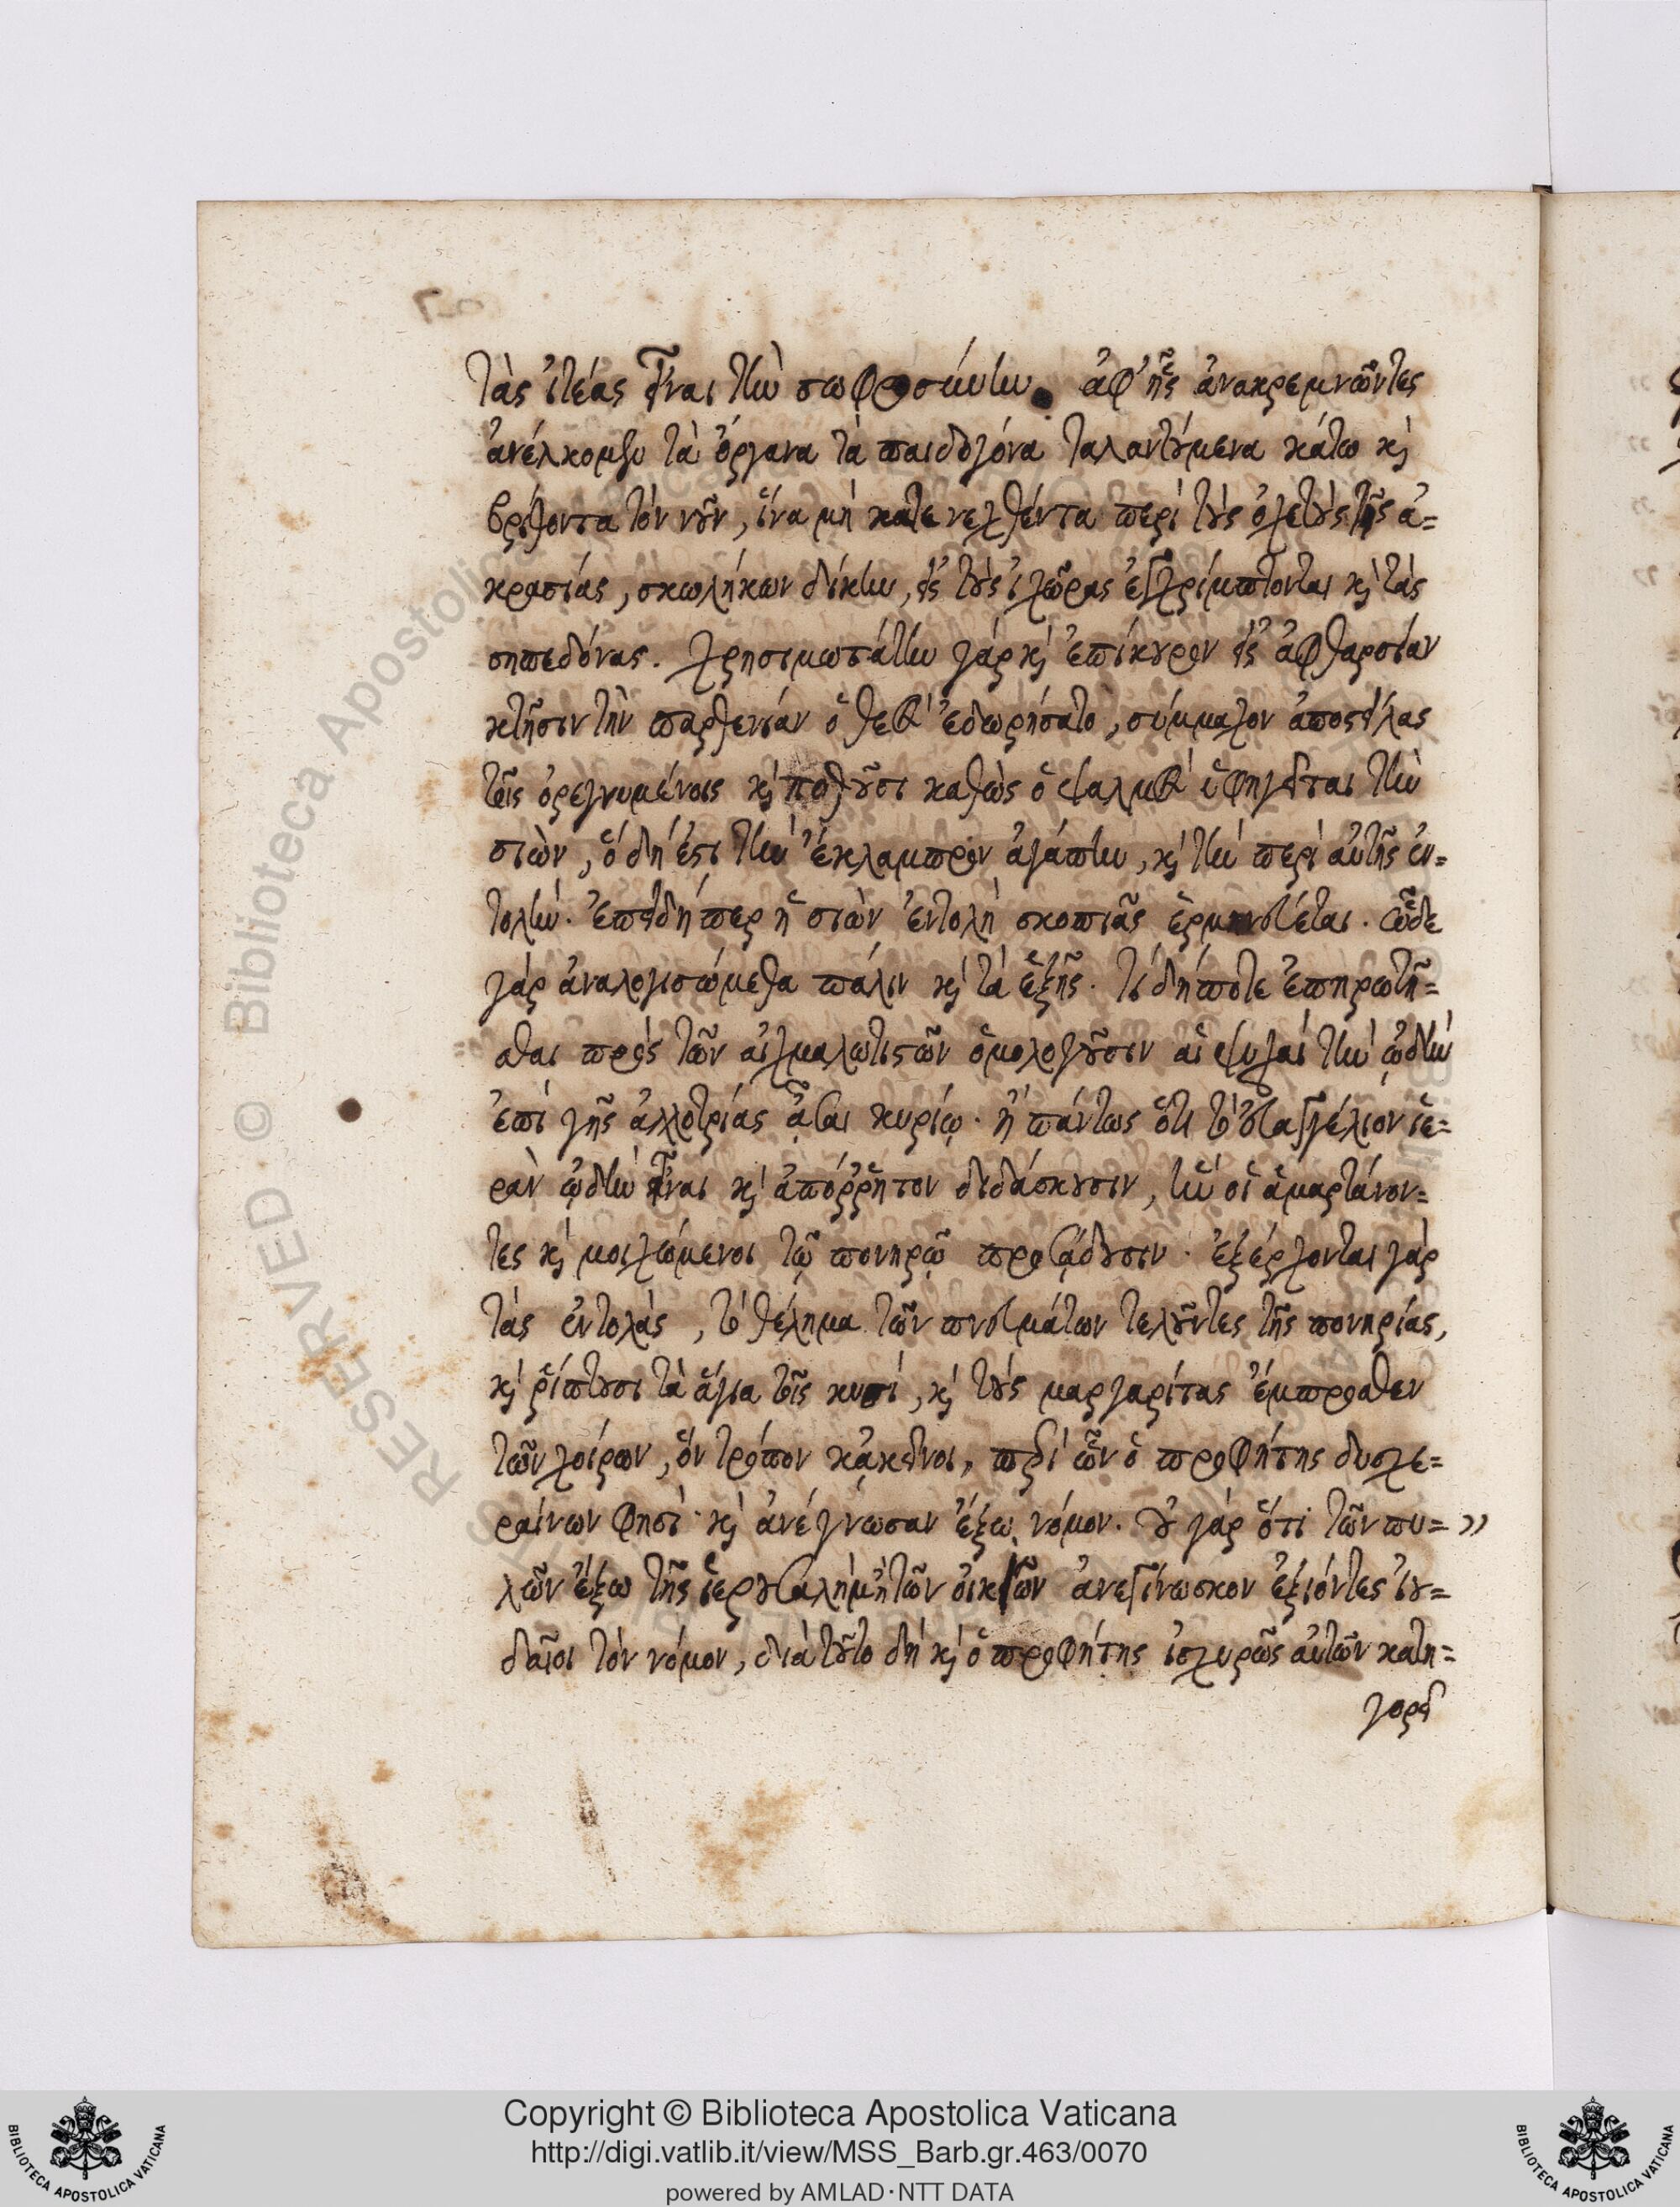 τὰς ἰτέας εἶναι τὴν σωφροσύνην. ἀφ' ἧς ἀνακρεμνῶντες
ἀνέλκομεν τὰ ὄργανα τὰ παιδογόνα ταλαντούμενα κάτω καὶ
βρίθοντα τὸν νοῦν, ἵνα μὴ κατενεχθέντα περὶ τοὺς ὀχετοὺς τῆς ἀ=
κρασίας, σκωλήκων δίκην, εἰς τοὺς ἰχῶρας ἐγχρίμπτονται καὶ τὰς
σηπεδόνας. χρησιμωτάτην γὰρ καὶ ἐπίκουρον εἰς ἀφθαρσίαν
κτῆσιν τὴν παρθενίαν ὁ θεὸς ἐδωρήσατο, σύμμαχον ἀποστείλας
τοῖς ὀρεγνυμένοις καὶ ποθοῦσι καθὼς ὁ ψαλμὸς ὑφηγεῖται τὴν
σιὼν, ὅ δή ἐστι τὴν ἔκλαμπρον ἀγάπην, καὶ τὴν περὶ αὐτῆς ἐν=
τολήν. ἐπειδήπερ ἡ σιὼν ἐντολὴ σκοπιᾶς ἑρμηνεύεται. ὧδε
γὰρ ἀναλογισώμεθα πάλιν καὶ τὰ ἑξῆς. τί δήποτε ἐπηρωτῆ=
σθαι πρὸς τῶν αἰχμαλωτιστῶν ὁμολογοῦσιν αἱ ψυχαὶ τὴν ᾠδὴν
ἐπὶ γῆς ἀλλοτρίας ᾆσαι κυρίῳ. ἢ πάντως ὅτι τὸ εὐαγγέλιον ἱε=
ρὰν ᾠδὴν εἶναι καὶ ἀπόῤῥητον διδάσκουσιν, ἣν οἱ ἁμαρτάνον=
τες καὶ μοιχώμενοι τῷ πονηρῷ προσᾴδουσιν. ἐξέρχονται γὰρ
τὰς ἐντολὰς, τὸ θέλημα τῶν πνευμάτων τελοῦντες τῆς πονηρίας,
καὶ ῥίπτουσι τὰ ἅγια τοῖς κυσί, καὶ τοὺς μαργαρίτας ἔμπροσθεν
τῶν χοίρων, ὃν τρόπον κἀκεῖνοι, περὶ ὧν ὁ προφήτης δυσχε=
ραίνων φησί· καὶ ἀνέγνωσαν ἔξω νόμον. οὐ γὰρ ὅτι τῶν πυ= »
λῶν ἔξω τῆς ἱερουσαλὴμ ἢ τῶν οἰκιῶν ἀνεγίνωσκον ἐξιόντες ἰου=
δαῖοι τὸν νόμον, διὰ τοῦτο δὴ καὶ ὁ προφήτης ἰσχυρῶς αὐτῶν κατη=
γορεῖ
Copyright © Biblioteca Apostolica Vaticana
http://digi.vatlib.it/view/MSS_Barb.gr.463/0070
powered by AMLAD·NTT DATA